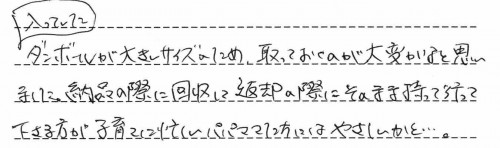 入っていた
ダンボールが大きいサイズのため、取っておくのが大変かなと思い
ました。納品の際に回収して返却の際にそのまま持って行って
下さる方が子育てに忙しいパパママ方にはやさしいかと…。